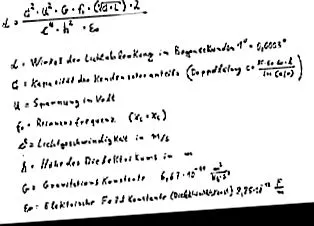 α = C² · U² · G · f₀ · (√(d·L)) · 2 / c⁴ · h² · ε₀
α = Winkel der Lichtablenkung in Bogensekunden 1" = 0,0003°
C = Kapazität des Kondensatoranteils (Doppel C =
U = Spannung in Volt
f₀ = Resonanzfrequenz (X_L = X_C)
c = Lichtgeschwindigkeit in m/s
h = Höhe des Dielektrikums in m
G = Gravitations Konstante 6,67 · 10⁻¹¹ m³/kg·s²
ε₀ = Elektrische Feld Konstante (Dielektrizitätskonst) 8,85·10⁻¹² F/m